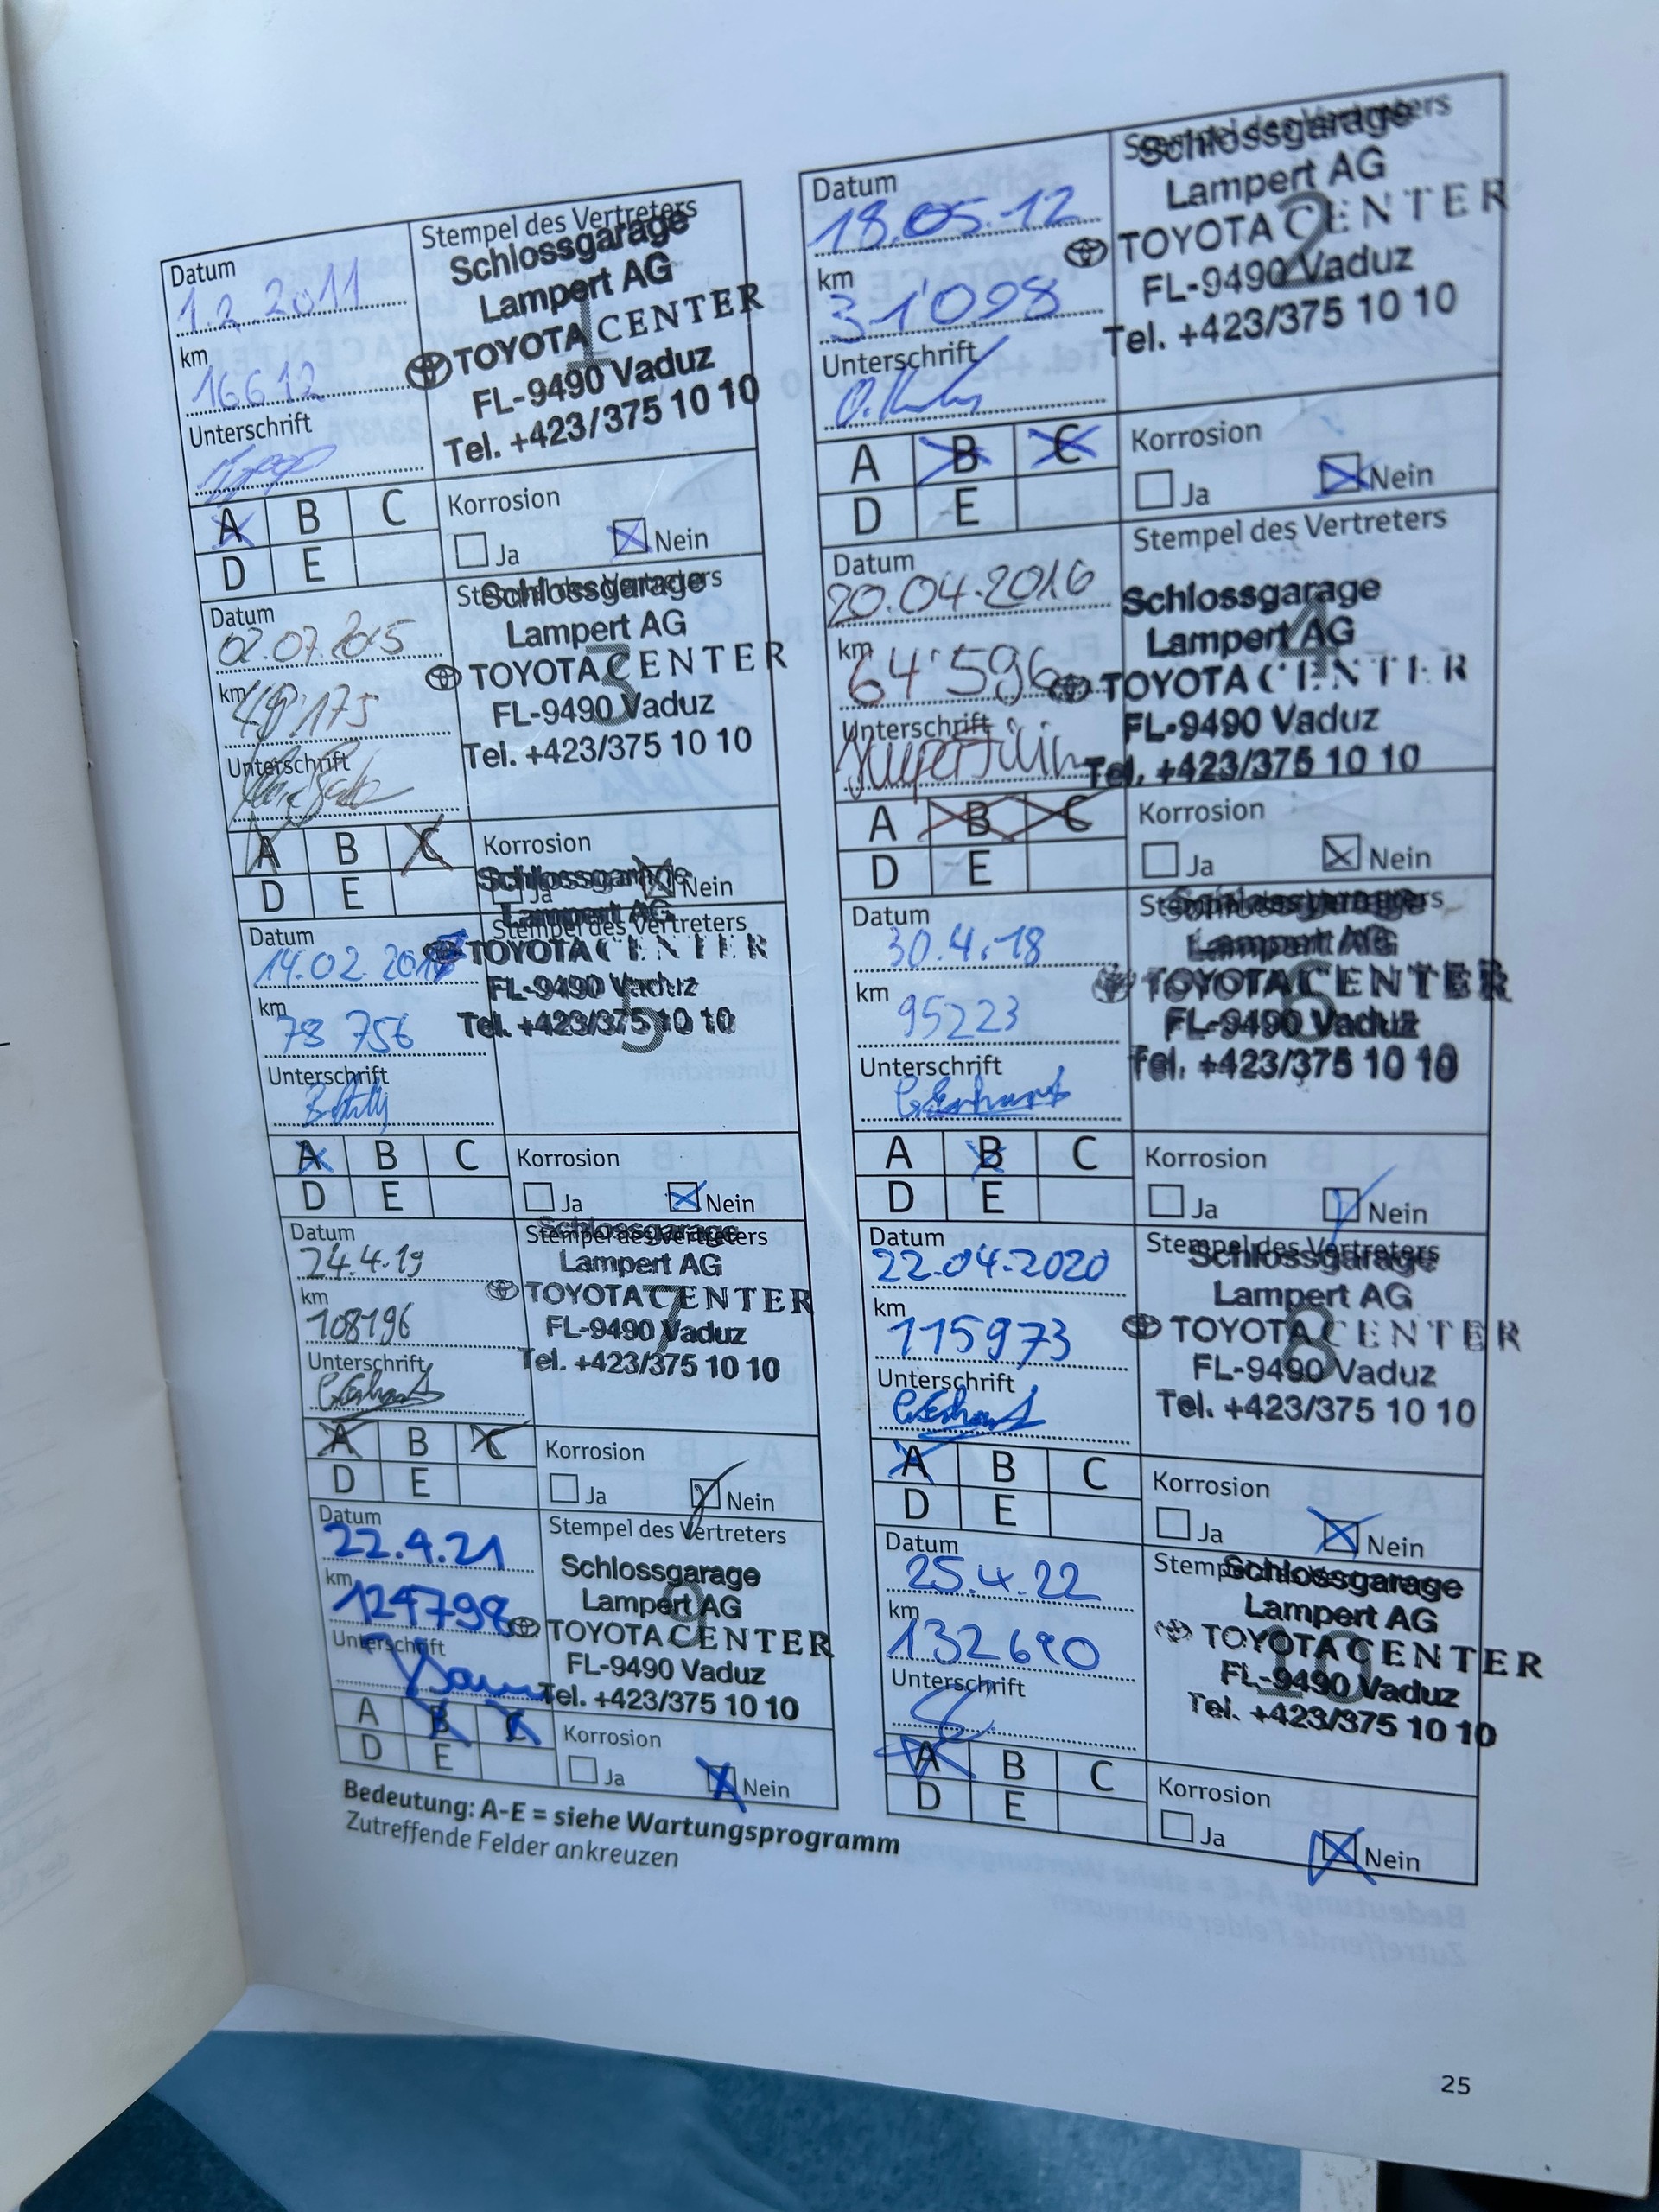 Datum
1.2.2011
km
16612
Unterschrift
Stempel des Vertreters
Schlossgarage
Lampert AG
1
TOYOTA CENTER
FL-9490 Vaduz
Tel. +423/375 10 10
A B C
D E
Korrosion
Ja Nein
Datum
18.05.12
km
31'098
Unterschrift
Stempel des Vertreters
Schlossgarage
Lampert AG
2
TOYOTA CENTER
FL-9490 Vaduz
Tel. +423/375 10 10
A B C
D E
Korrosion
Ja Nein
Datum
02.07.2015
km
Unterschrift
Stempel des Vertreters
Schlossgarage
Lampert AG
3
TOYOTA CENTER
FL-9490 Vaduz
Tel. +423/375 10 10
A B C
D E
Korrosion
Ja Nein
Datum
20.04.2016
km
64'596
Unterschrift
Stempel des Vertreters
Schlossgarage
Lampert AG
4
TOYOTA CENTER
FL-9490 Vaduz
Tel. +423/375 10 10
A B C
D E
Korrosion
Ja Nein
Datum
14.02
km
78 756
Unterschrift
Schlossgarage
Lampert AG
Stempel des Vertreters
TOYOTA CENTER
FL-9490 Vaduz
Tel. +423/375 10 10
5
A B C
D E
Korrosion
Ja Nein
Datum
30.4.18
km
95223
Unterschrift
Stempel des Vertreters
Schlossgarage
Lampert AG
TOYOTA CENTER
6
FL-9490 Vaduz
Tel. +423/375 10 10
A B C
D E
Korrosion
Ja Nein
Datum
24.4.19
km
108196
Unterschrift
Stempel des Vertreters
Schlossgarage
Lampert AG
TOYOTA CENTER
7
FL-9490 Vaduz
Tel. +423/375 10 10
A B C
D E
Korrosion
Ja Nein
Datum
22.04.2020
km
115973
Unterschrift
Stempel des Vertreters
Schlossgarage
Lampert AG
TOYOTA CENTER
8
FL-9490 Vaduz
Tel. +423/375 10 10
A B C
D E
Korrosion
Ja Nein
Datum
22.4.21
km
124798
Unterschrift
Stempel des Vertreters
Schlossgarage
Lampert AG
9
TOYOTA CENTER
FL-9490 Vaduz
Tel. +423/375 10 10
A B C
D E
Korrosion
Ja Nein
Datum
25.4.22
km
132690
Unterschrift
Stempel des Vertreters
Schlossgarage
Lampert AG
TOYOTA CENTER
10
FL-9490 Vaduz
Tel. +423/375 10 10
A B C
D E
Korrosion
Ja Nein
Bedeutung: A-E = siehe Wartungsprogramm
Zutreffende Felder ankreuzen
25